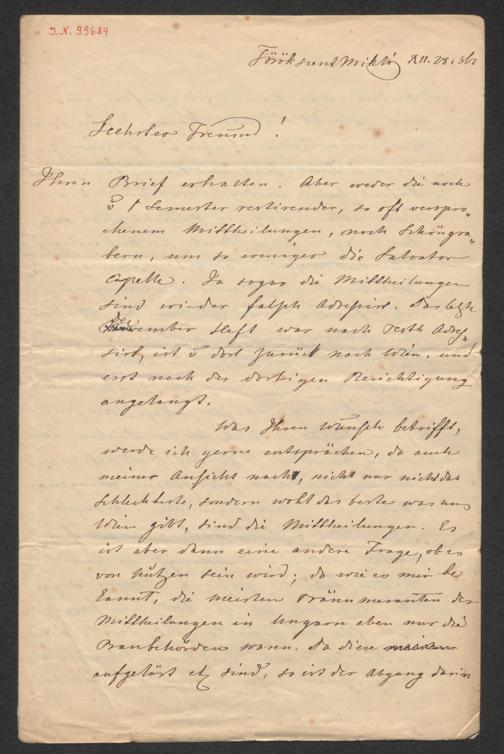 I.N. 99684
Törökszent Mikló XII. 28. 861
Geehrter Freund!
Ihren Brief erhalten. Aber weder die noch
v 1 Semester restirender, so oft verspro„
chenem Mittheilungen, noch Schöngra„
bern, um so weniger die Salvator
Capelle. Ja sogar die Mittheilungen
sind wieder falsch Adressirt. Das letzte
Dezember Heft war nach Pesth Adres„
sirt, ist v dort zurück nach Wien, und
erst nach der dortigen Berichtigung
angelangt.
Was Ihren Wunsch betrifft,
werde ich gerne entsprächen, da auch
meiner Ansicht nach, nicht nur nicht das
schlechteste, sondern wohl das beste was uns
Wien gibt, sind die Mittheilungen. Es
ist aber dann eine andere Frage, ob es
von Nutzen sein wird; da wie es mir be
kannt, die meisten Pränumeranten der
Mittheilungen in Ungarn eben nur die
Baubehörden waren. Da diese
aufgelöst etz sind, so ist der Abgang darin